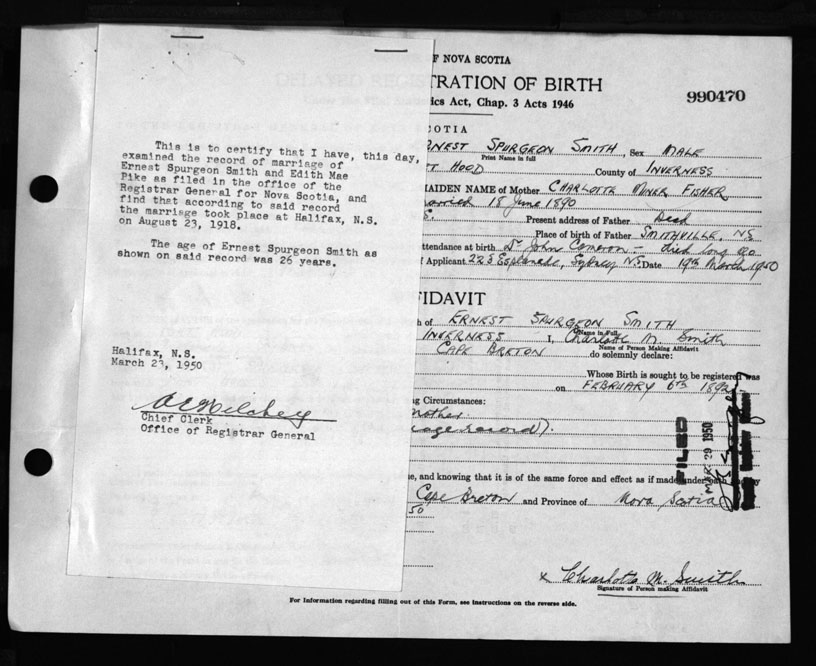 This is to certify that I have, this day,
examined the record of marriage of
Ernest Spurgeon Smith and Edith Mae
Pike as filed in the office of the
Registrar General for Nova Scotia, and
find that according to said record
the marriage took place at Halifax, N.S.
on August 23, 1918.
The age of Ernest Spurgeon Smith as
shown on said record was 26 years.
Halifax, N.S.
March 23, 1950
Chief Clerk
Office of Registrar General
F NOVA SCOTIA
TRATION OF BIRTH
ics Act, Chap. 3 Acts 1946
990470
COTIA
RNEST SPURGEON SMITH, Sex MALE
Print Name in full
HOOD County of INVERNESS
MAIDEN NAME of Mother CHARLOTTE MINER FISHER
arried 18 June 1890
E. Present address of Father Dead
Place of birth of Father SMITHVILLE, NS
ttendance at birth Dr John Cameron - died long ago
Applicant 223 Esplanade, Sydney N.S. Date 19th March 1950
FIDAVIT
h of ERNEST SPURGEON SMITH
Name in Full
INVERNESS I, Charlotte M. Smith
Name of Person Making Affidavit
CAPE BRETON do solemnly declare:
Whose Birth is sought to be registered was
on FEBRUARY 6TH 1892
ng Circumstances:
mother.
iage record).
FILED
MAR 29 1950
e, and knowing that it is of the same force and effect as if made under oath
Cape Breton and Province of Nova Scotia
50
x Charlotte M. Smith
Signature of Person making Affidavit
For Information regarding filling out of this Form, see Instructions on the reverse side.